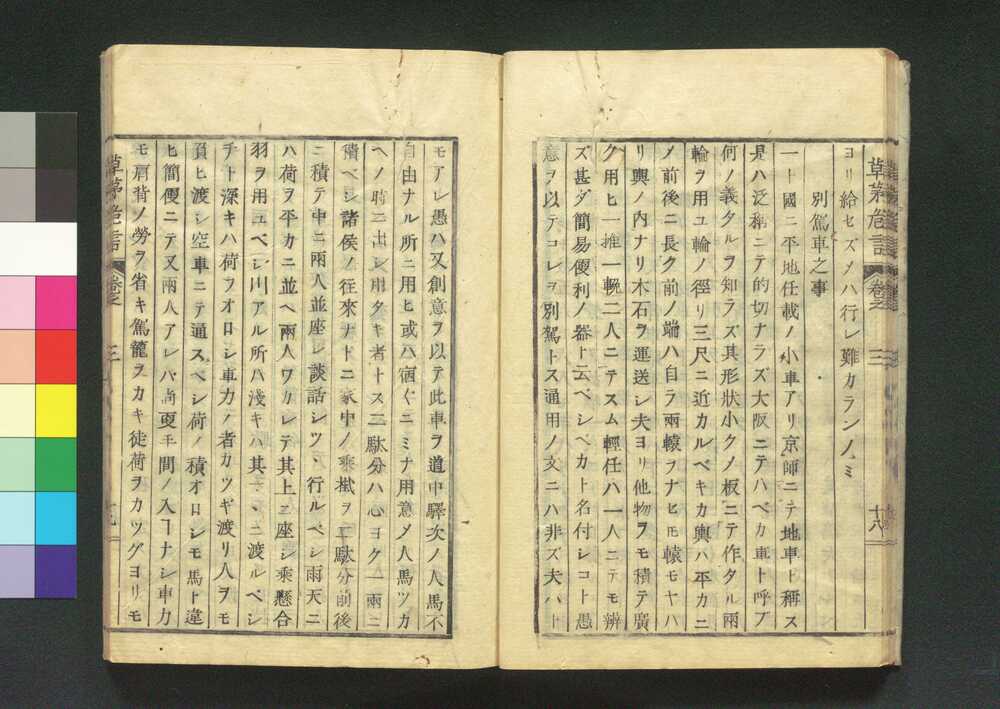 草茅危言
卷之
三
十八
ヨリ給セズメハ行レ難カランノミ
別駕車之事
一ト國ニ平地任載ノ小車アリ京師ニテ地車ト稱ス
是ハ泛稱ニテ的切ナラズ大阪ニテハベカ車ト呼ブ
何ノ義タルヲ知ラズ其形狀小クノ板ニテ作タル兩
輪ヲ用ユ輪ノ徑リ三尺ニ近カルベキカ輿ハ平カニ
ノ前後ニ長ク前ノ端ハ自ラ兩轅ヲナヒモ轅モヤハ
リ輿ノ内ナリ木石ヲ運送シ夫ヨリ他物ヲモ積テ廣
ク用ヒ一推一輓二人ニテスム輕任ハ一人ニテモ辨
ズ甚ダ簡易便利ノ器ト云ベシベカト名付レコト愚
意ヲ以テコレヲ別駕トス通用ノ文ニハ非ズ夫ハト
モアレ愚ハ又創意ヲ以テ此車ヲ道中驛次ノ人馬不
自由ナル所ニ用ヒ或ハ宿々ニミナ用意メ人馬ツカ
ヘノ時ニ出シ用タキ者トス二駄分ハ心ヨク一兩ニ
積ベシ諸侯ノ往來ナドニ家中ノ乘掛ヲ二駄分前後
ニ積テ中ニ兩人並座シ談話シツヽ行ルベシ雨天ニ
ハ荷ヲ平カニ並ヘ兩人ワカレテ其上ニ座シ乘懸合
羽ヲ用ユベシ川アル所ハ淺キハ其マヽニ渡ルベシ
チト深キハ荷ヲオロシ車力ノ者カツギ渡リ人ヲモ
負ヒ渡シ空車ニテ通スベシ荷ノ積オロシモ馬ト違
ヒ簡便ニテ又兩人アレバ尚更モ間ノ入ヿナシ車力
モ肩背ノ勞ヲ省キ駕籠ヲカキ徒荷ヲカツグヨリモ
草茅危言
卷之
三
十九